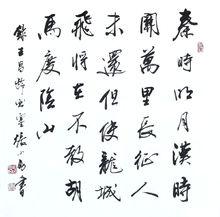 秦時明月漢時
關萬里長征人
未還但使龍城
飛將在不教胡
馬度陰山
錄王昌齡出塞張書